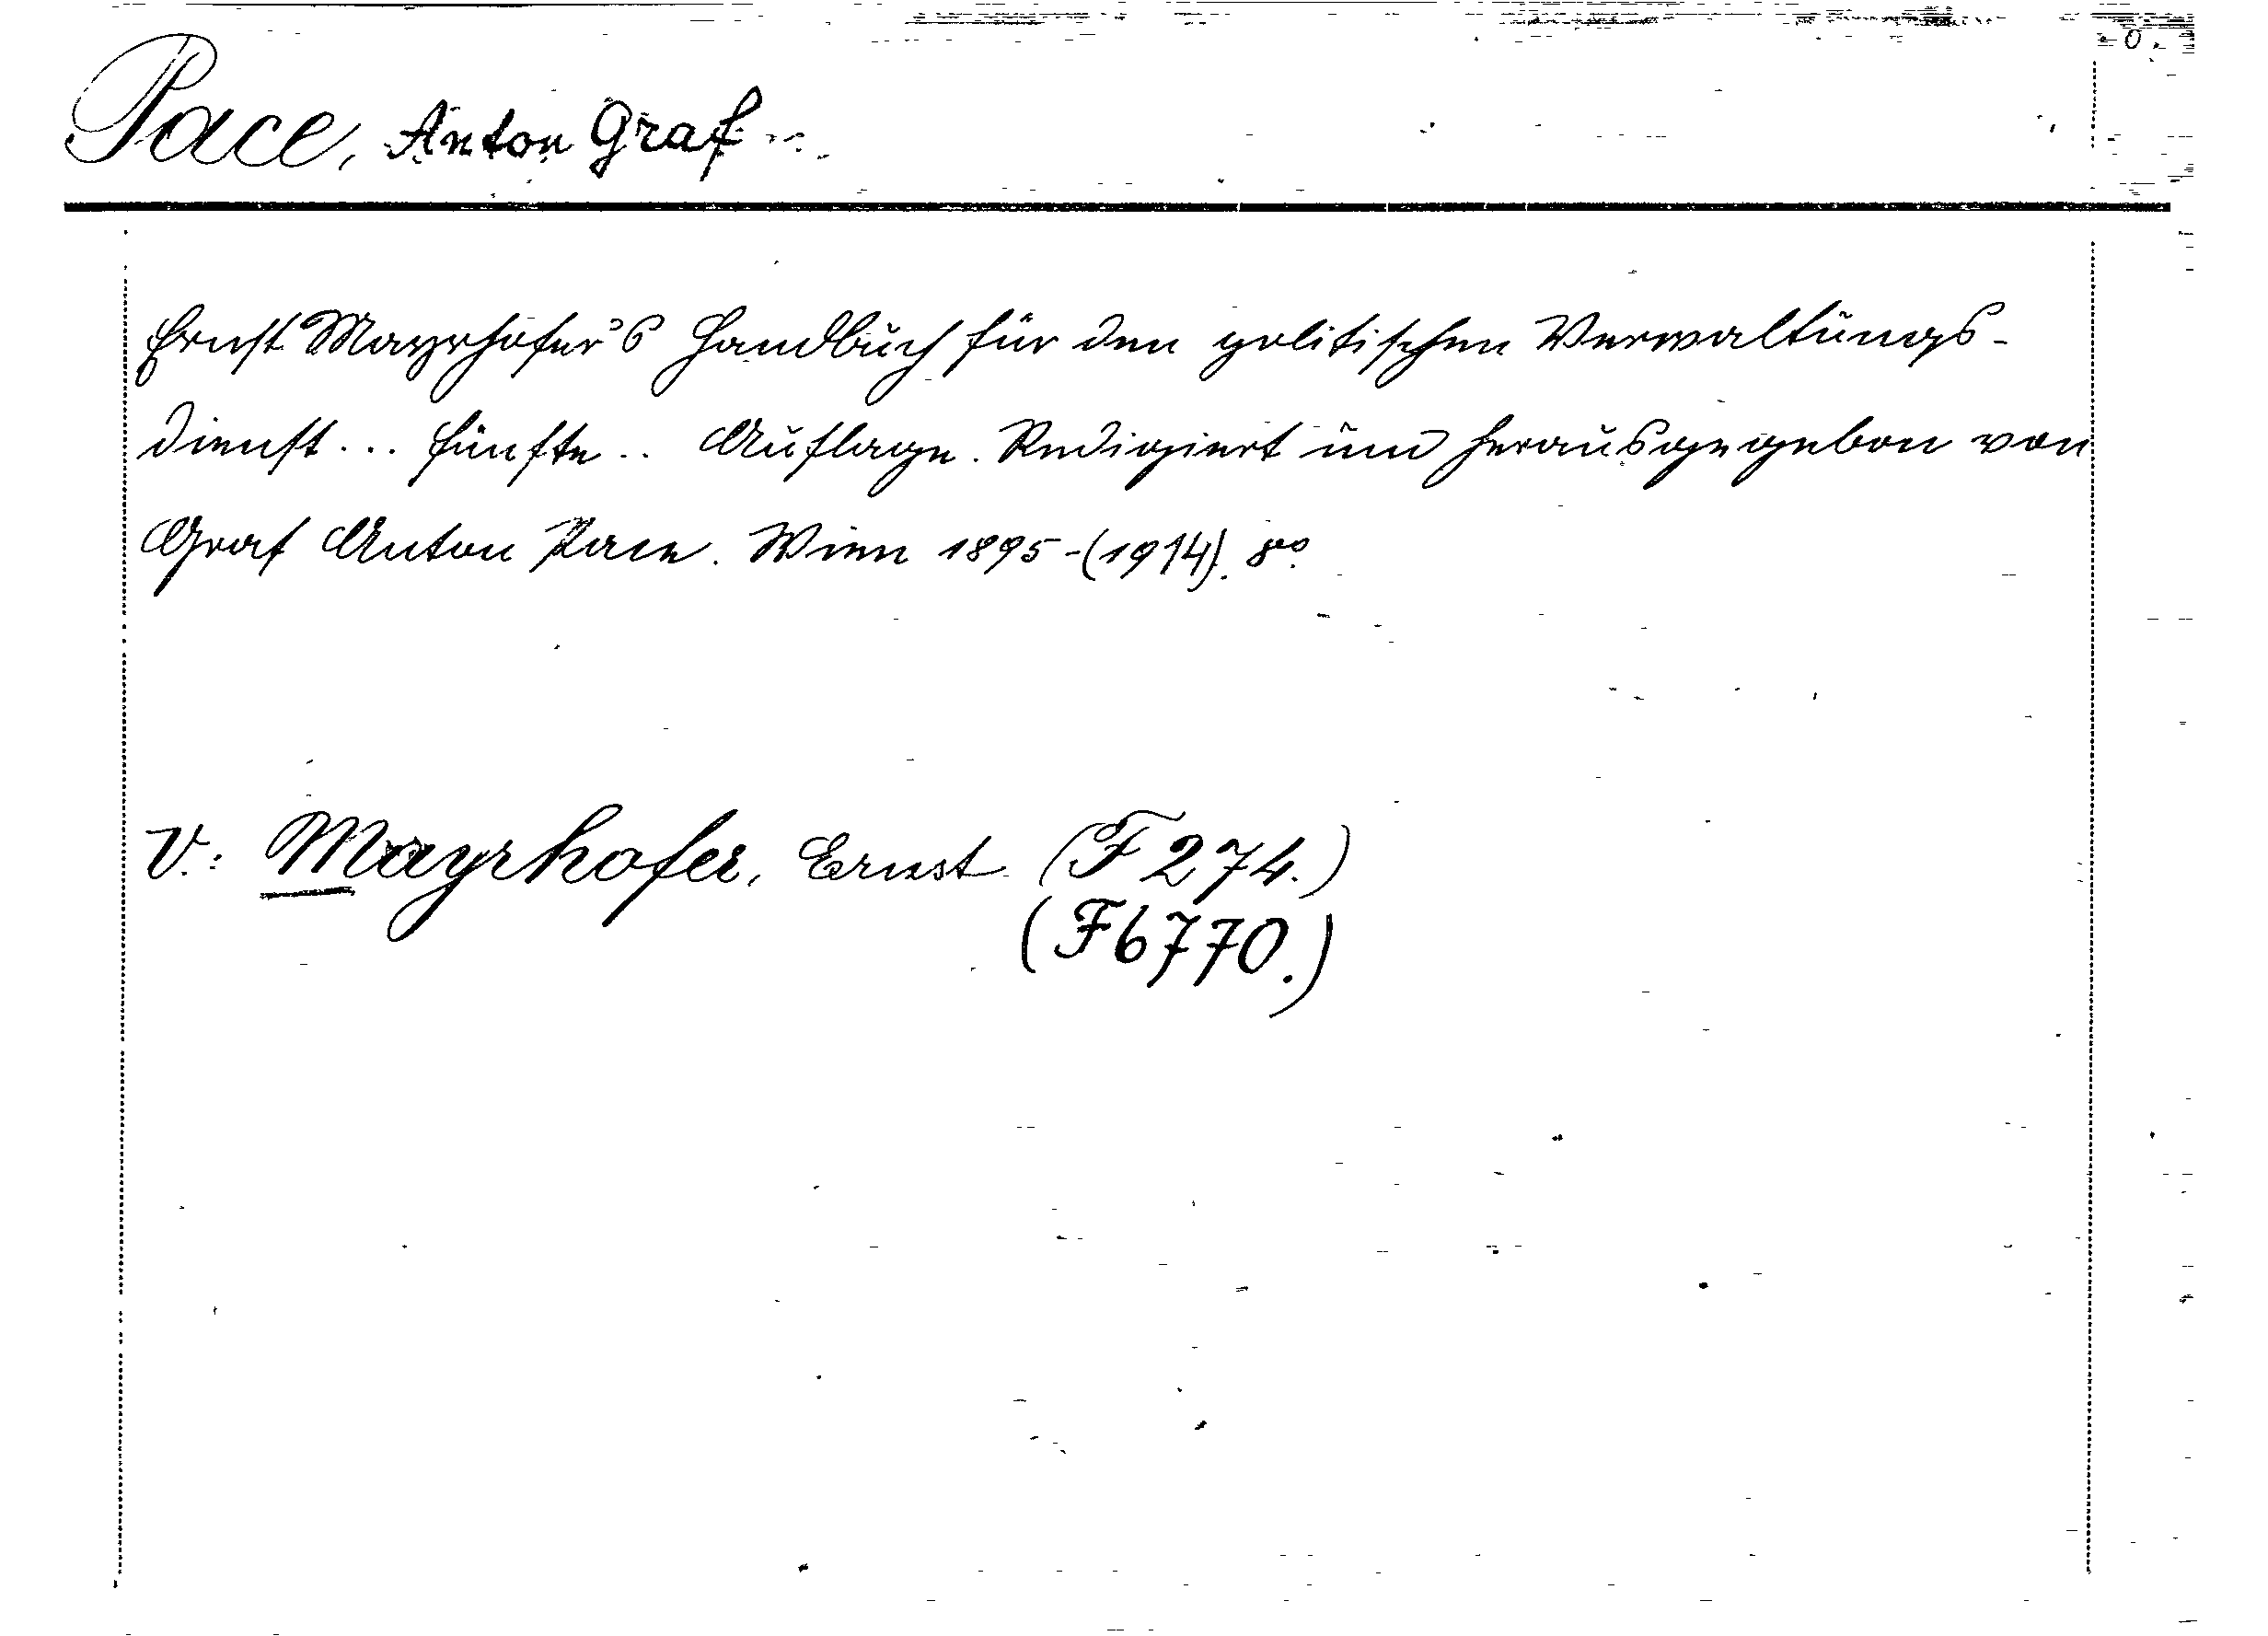 Pace, Anton Graf
Ernst Mayrhofer's Handbuch für den politischen Verwaltungs-
dienst... fünfte.. Auflage. Redigiert und herausgegeben von
Graf Anton Pace. Wien 1895-(1914). 8vo.
V.: Mayrhofer, Ernst (F 274.)
(F 6770.)